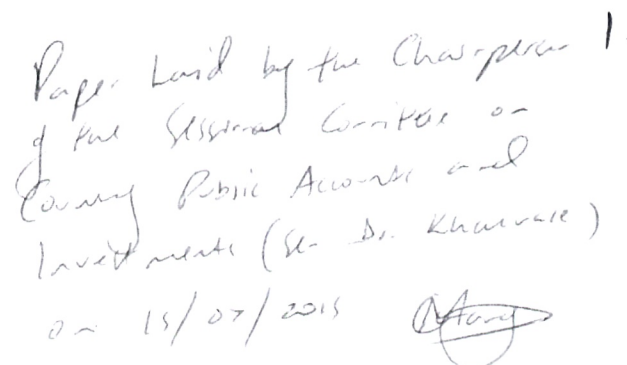 Paper Laid by the Chairperson
of the Sessional Committee on
County Public Accounts and
Investments (Sen Dr. Khalwale)
on 15/07/2015